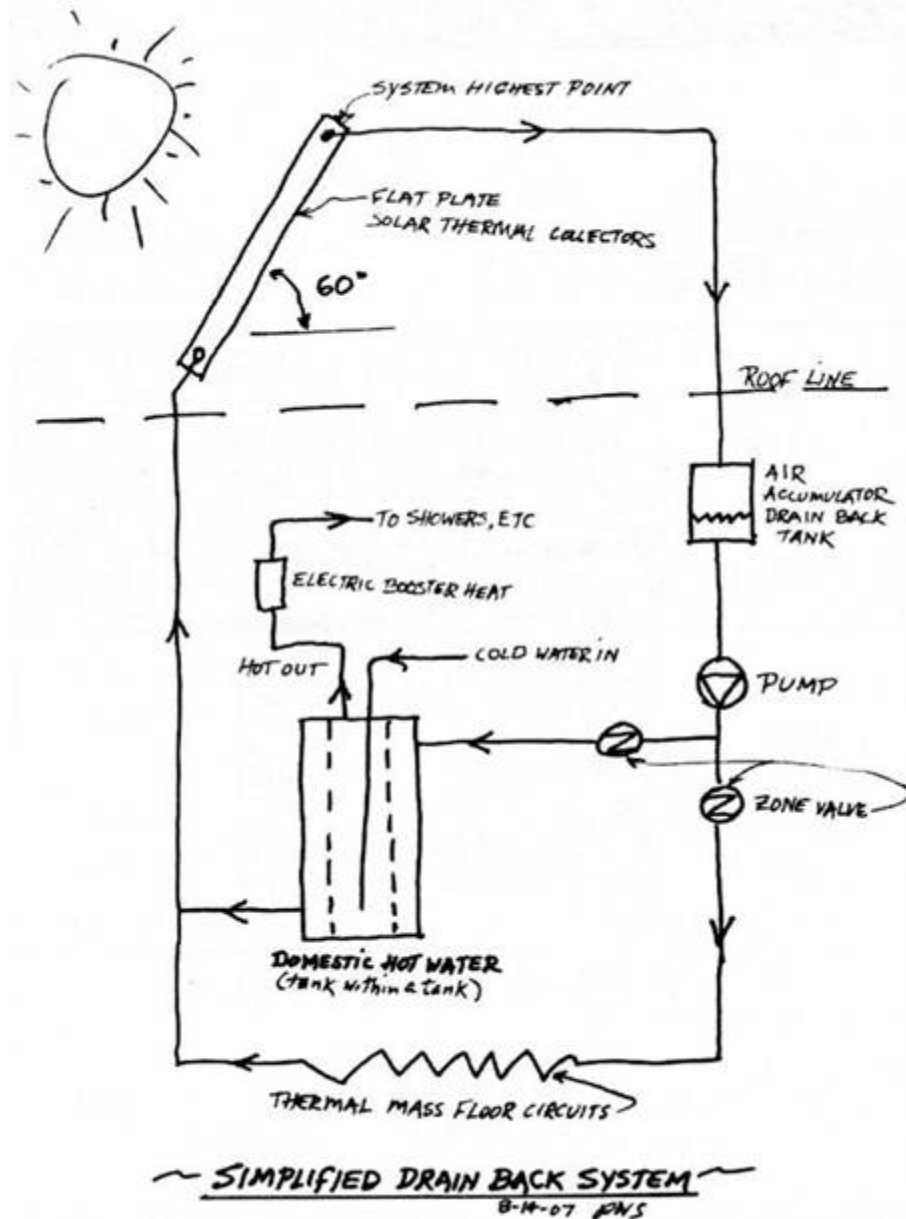 SYSTEM HIGHEST POINT
FLAT PLATE
SOLAR THERMAL COLLECTORS
60°
ROOF LINE
AIR
ACCUMULATOR
DRAIN BACK
TANK
TO SHOWERS, ETC
ELECTRIC BOOSTER HEAT
COLD WATER IN
HOT OUT
PUMP
ZONE VALVE
DOMESTIC HOT WATER
(tank within a tank)
THERMAL MASS FLOOR CIRCUITS
~ SIMPLIFIED DRAIN BACK SYSTEM ~
8-14-07 PNS